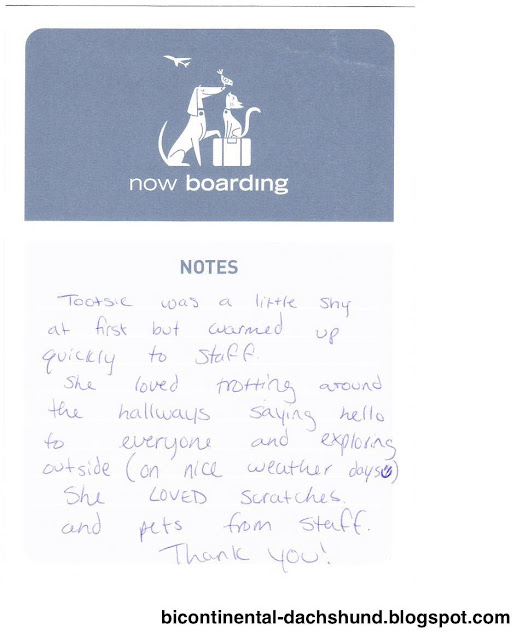 now boarding
NOTES
Tootsie was a little shy
at first but warmed up
quickly to staff.
She loved trotting around
the hallways saying hello
to everyone and exploring
outside (on nice weather days)
She LOVED scratches.
and pets from staff.
Thank you!
bicontinental-dachshund.blogspot.com